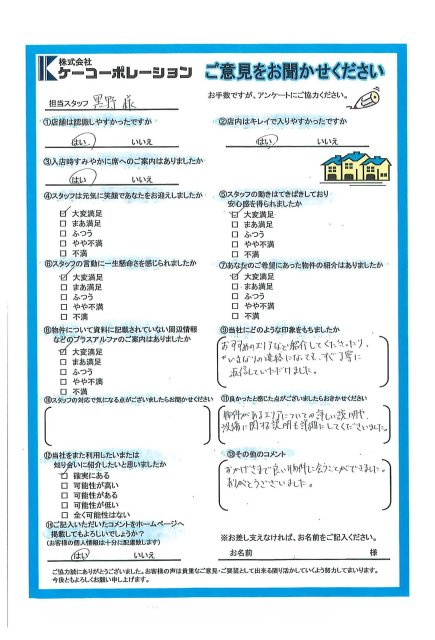 株式会社
ケーコーポレーション
ご意見をお聞かせください
お手数ですが、アンケートにご協力ください。
担当スタッフ 黒野 様
①店舗は認識しやすかったですか
はい いいえ
②店内はキレイで入りやすかったですか
はい いいえ
③入店時すみやかに席へのご案内はありましたか
はい いいえ
④スタッフは元気に笑顔であなたをお迎えしましたか
☑ 大変満足
□ まあ満足
□ ふつう
□ やや不満
□ 不満
⑤スタッフの動きはてきぱきしており
安心感を得られましたか
☑ 大変満足
□ まあ満足
□ ふつう
□ やや不満
□ 不満
⑥スタッフの言動に一生懸命さを感じられましたか
☑ 大変満足
□ まあ満足
□ ふつう
□ やや不満
□ 不満
⑦あなたのご希望にあった物件の紹介はありましたか
☑ 大変満足
□ まあ満足
□ ふつう
□ やや不満
□ 不満
⑧物件について資料に記載されていない周辺情報
などのプラスアルファのご案内はありましたか
☑ 大変満足
□ まあ満足
□ ふつう
□ やや不満
□ 不満
⑨当社にどのような印象をもちましたか
おすすめのエリアなど紹介してくださったり、
いきなりの連絡になっても、すぐ丁寧に
返信していただけました。
⑩スタッフの対応で気になる点がございましたらお聞かせください
⑪良かったと感じた点がございましたらおきかせください
物件があるエリアについての詳しい説明や、
設備に関する説明も詳細にしてくださいました。
⑫当社をまた利用したいまたは
知り合いに紹介したいと思いましたか
☑ 確実にある
□ 可能性が高い
□ 可能性がある
□ 可能性が低い
□ 全く可能性はない
⑬その他のコメント
おかげさまで良い物件に会うことができました。
ありがとうございました。
⑭ご記入いただいたコメントをホームページへ
掲載してもよろしいでしょうか？
(お客様の個人情報は十分に配慮致します)
はい いいえ
※お差し支えなければ、お名前をご記入ください。
お名前 様
ご協力誠にありがとうございました。お客様の声は貴重なご意見・ご要望として出来る限り活かしていくよう努力してまいります。
今後ともよろしくお願い申し上げます。